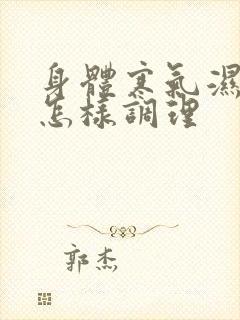 身體寒氣濕
怎樣調理
郭杰